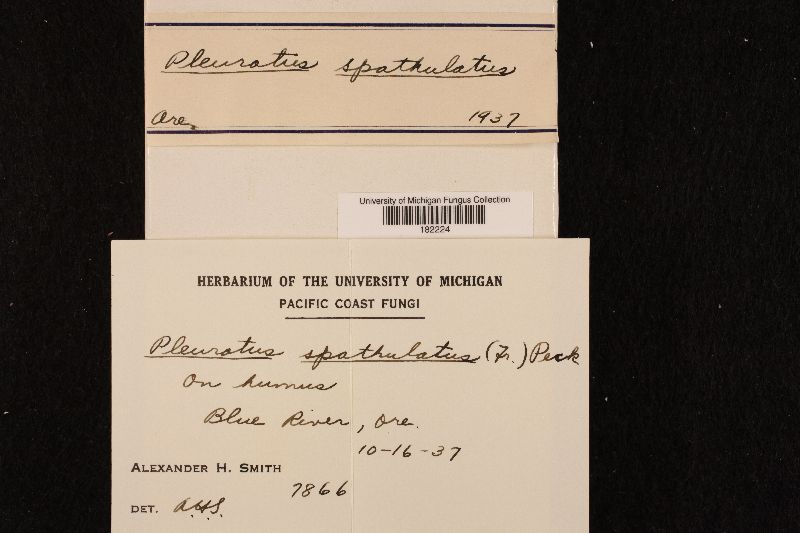 Pleurotus spathulatus
Ore. 1937
University of Michigan Fungus Collection
182224
HERBARIUM OF THE UNIVERSITY OF MICHIGAN
PACIFIC COAST FUNGI
Pleurotus spathulatus (Fr.) Peck
On humus
Blue River, Ore.
10-16-37
ALEXANDER H. SMITH
7866
DET. AHS.